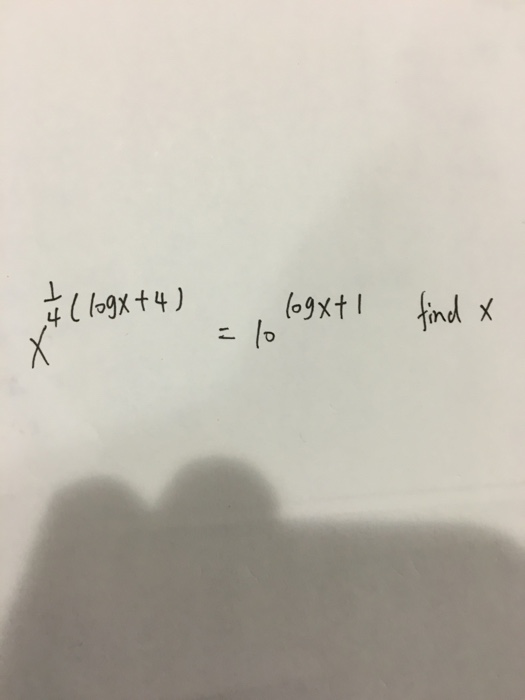 x^{\frac{1}{4}(logx+4)} = 10^{logx+1} find x